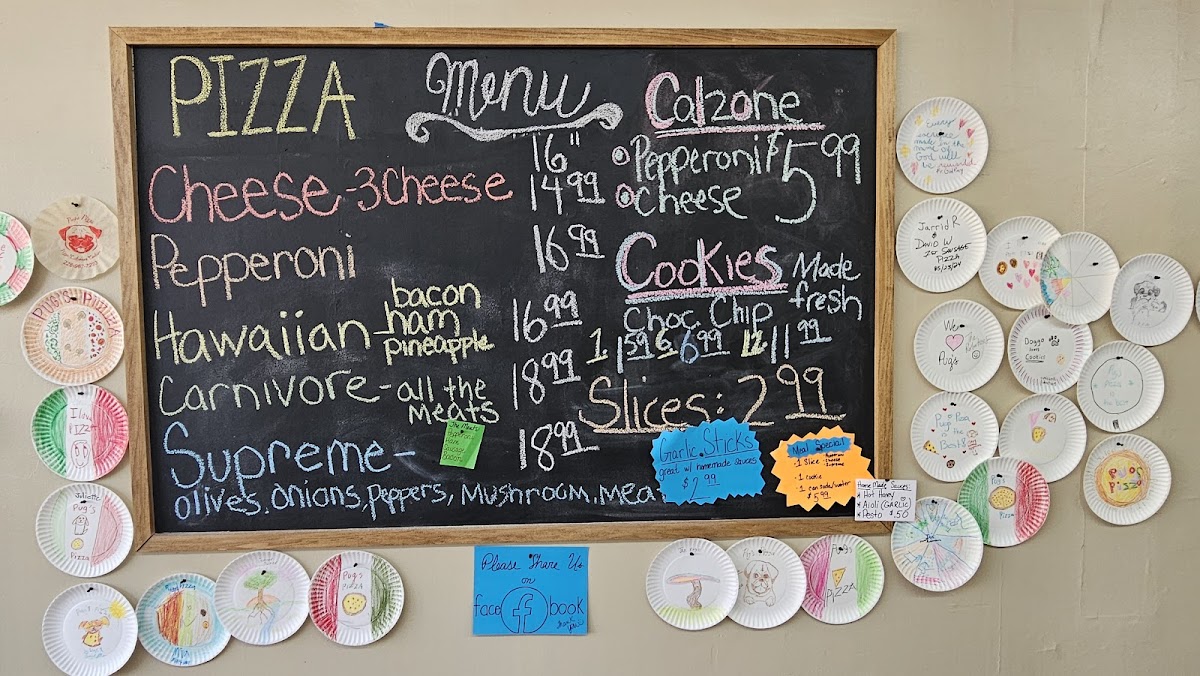 PIZZA
Menu
16"
Cheese - 3 Cheese 14.99
Pepperoni 16.99
Hawaiian - bacon
ham
pineapple
16.99
Carnivore - all the
Meats
18.99
The Meats
Supreme - 18.99
olives, onions, Peppers, Mushroom, Meat
Calzone
Pepperoni $5.99
Cheese
Cookies Made
fresh
Choc. Chip
1 1.59 6 6.99 12 11.99
Slices: 2.99
Garlic Sticks
great w/ homemade sauces
$2.99
Meal Special
1 Slice - Pepperoni
Cheese
Supreme
1 cookie
1 can soda/water
$5.99
Home Made Sauces
* Hot Honey
* Aioli (GARLIC)
* Pesto $.50
Please Share Us
on
face f book
PUG'S PIZZA
I love
PIZZA
Pug's
Pizza
Pug's
PIZZA
Pug's
PIZZA
Every
God will
be
Jarrid R
&
David W
16" SAUSAGE
PIZZA
We
Pug's
Doggo
loves
Cookies
Pug Pizza
is the
Best!
Pug's
Pizza
Pug's
Pizza